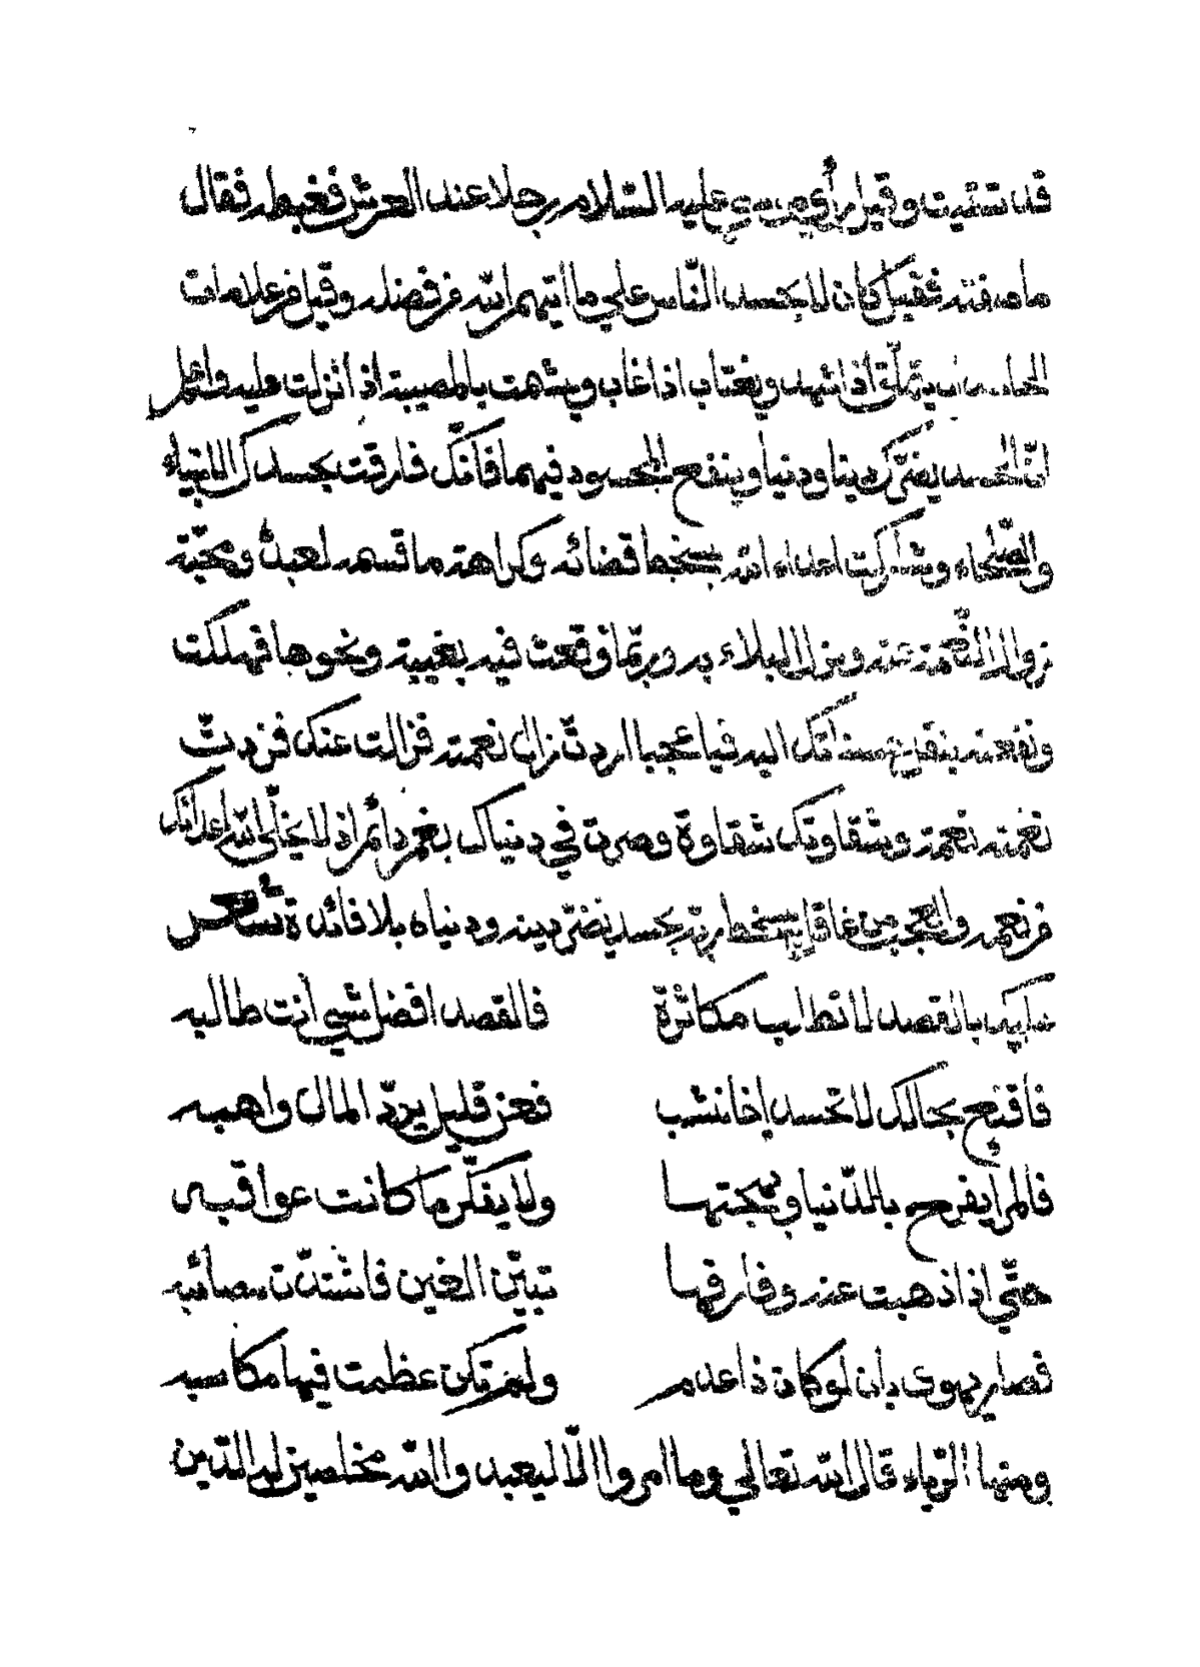 قد تثنيت وقيل رأى موسى عليه السّلام رجلا عند العرش فغبطه فقال
ما صفته فقيل كان لا يحسد النّاس على ما اتيهم الله من فضله وقيل من علامات
الحاسد ان يتملّق اذا شهد ويغتاب اذا غاب ويشمت بالمصيبة اذا نزلت عليه واعلم
انّ الحسد يضرّك دينا ودنيا وينفع المحسود فيهما فانّك فارقت بحسدك الانبياء
والصّلحاء وشاركت اعداء الله بسخط قضائه وكراهة ما قسمه لعبده ومحبّة
زوال النّعمة عنه ونزول البلاء به وربّما وقعت فيه بغيبة ونحوها فهلكت
ونفعته بنقل حسناتك اليه فيا عجبا اردتّ زوال نعمته فزالت عنك فزدتّ
نعمته نعمة وشقاوتك شقاوة وصرت في دنياك بغمّ دائم اذ لا يخلّى الله اعدائك
من نعمه والعجب من عاقل يسخط ربّه بحسد يضرّ دينه ودنياه بلا فائدة شعر
عليك بالقصد لا تطلب مكاثرة فالقصد افضل شيء أنت طالبه
فاقنع بحالك لا تحسد اخا نشب فعن قليل يردّ المال واهبه
فالمرا يفرح بالدّنيا وبهجتها ولا يفكّر ما كانت عواقبه
حتّى اذا ذهبت عنه وفارقها تبيّن الغبن فاشتدّت مصائبه
فصار يهوى بان لو كان ذا عدم ولم تكن عظمت فيها مكاسبه
ومنها الرّياء قال الله تعالى وما امروا الّا ليعبدوا الله مخلصين له الدّين